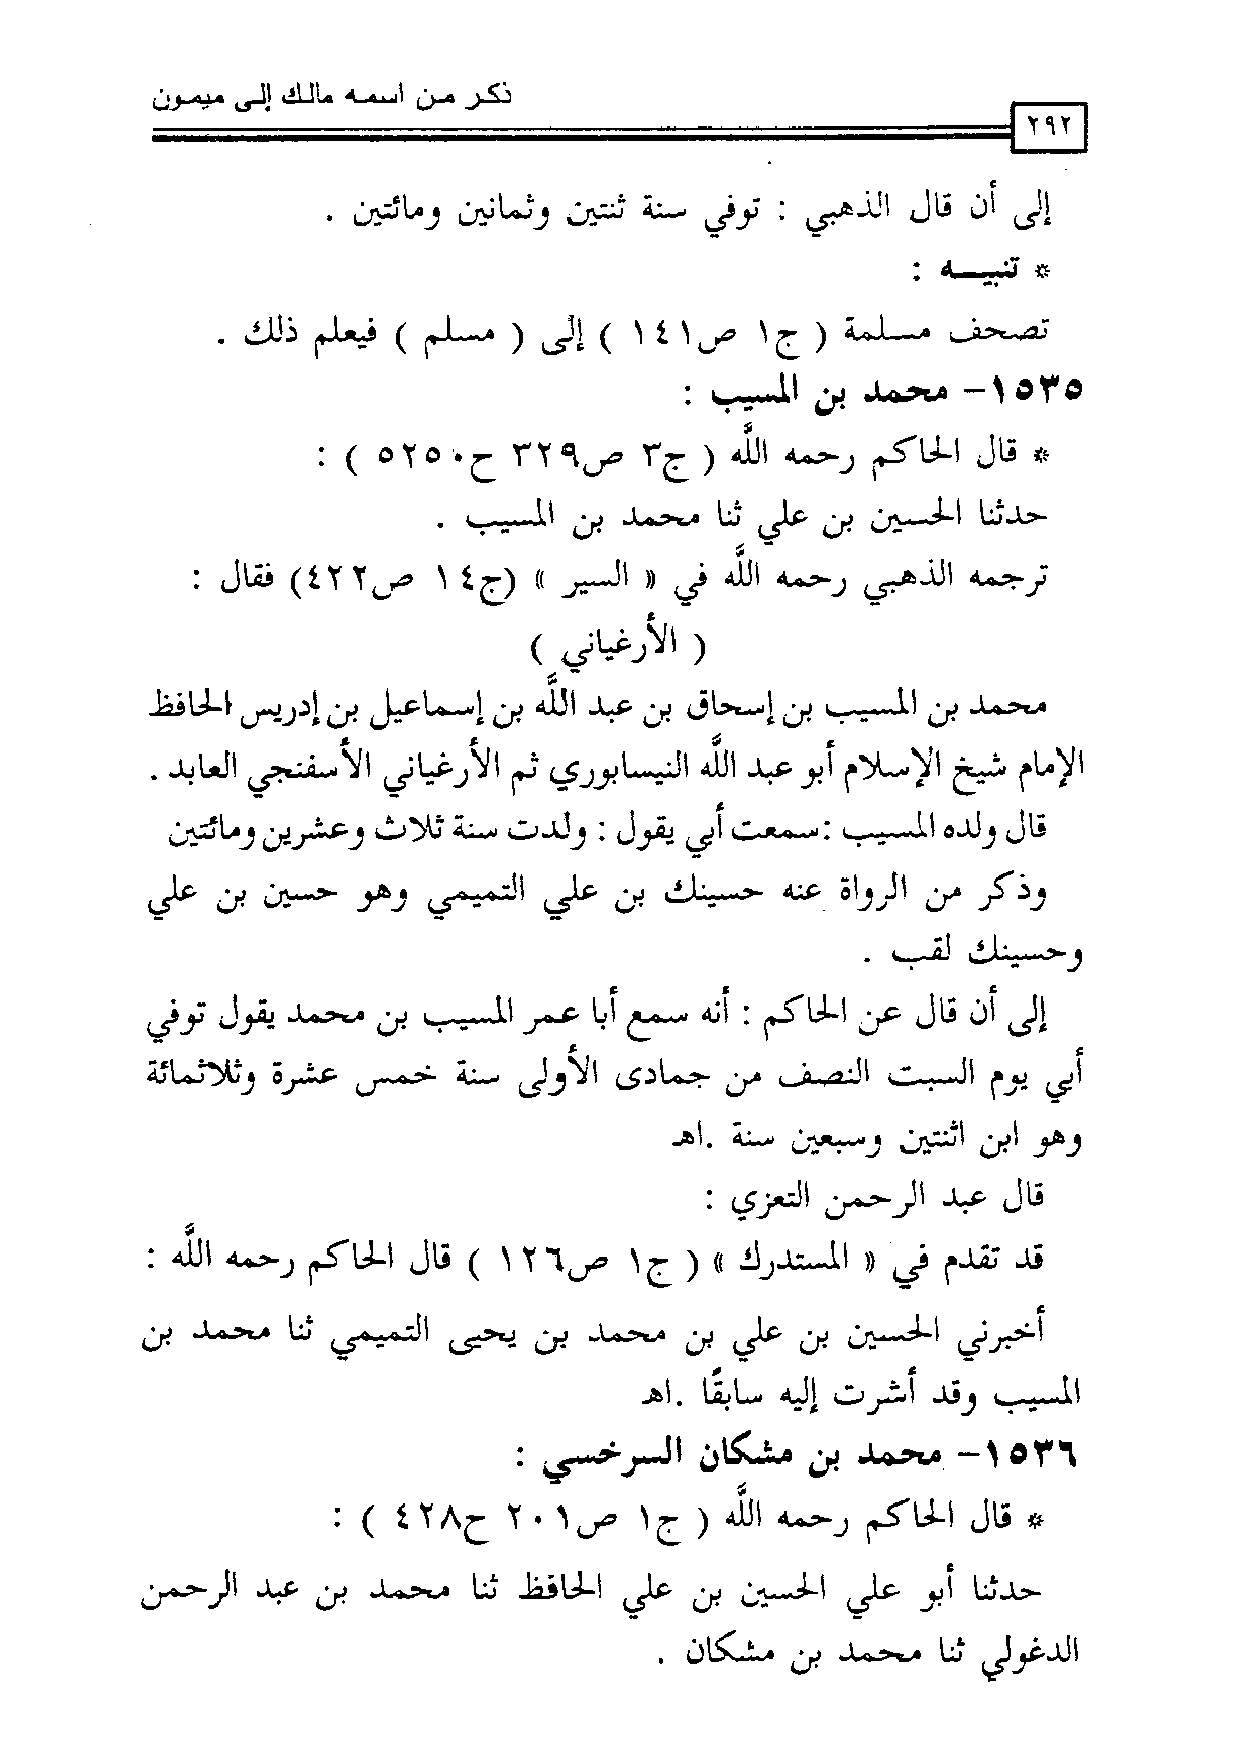 ذكر من اسمه مالك إلى ميمون
٢٩٢
إلى أن قال الذهبي : توفي سنة ثنتين وثمانين ومائتين .
* تنبيـــه :
تصحف مسلمة ( ج١ ص١٤١ ) إلى ( مسلم ) فيعلم ذلك .
١٥٣٥- محمد بن المسيب :
* قال الحاكم رحمه اللَّه ( ج٣ ص٣٢٩ ح٥٢٥٠ ) :
حدثنا الحسين بن علي ثنا محمد بن المسيب .
ترجمه الذهبي رحمه اللَّه في « السير » (ج١٤ ص٤٢٢) فقال :
( الأرغياني )
محمد بن المسيب بن إسحاق بن عبد اللَّه بن إسماعيل بن إدريس الحافظ
الإمام شيخ الإسلام أبو عبد اللَّه النيسابوري ثم الأرغياني الأسفنجي العابد .
قال ولده المسيب :سمعت أبي يقول : ولدت سنة ثلاث وعشرين ومائتين
وذكر من الرواة عنه حسينك بن علي التميمي وهو حسين بن علي
وحسينك لقب .
إلى أن قال عن الحاكم : أنه سمع أبا عمر المسيب بن محمد يقول توفي
أبي يوم السبت النصف من جمادى الأولى سنة خمس عشرة وثلاثمائة
وهو ابن اثنتين وسبعين سنة .اهـ
قال عبد الرحمن التعزي :
قد تقدم في « المستدرك » ( ج١ ص١٢٦ ) قال الحاكم رحمه اللَّه :
أخبرني الحسين بن علي بن محمد بن يحيى التميمي ثنا محمد بن
المسيب وقد أشرت إليه سابقًا .اهـ
١٥٣٦- محمد بن مشكان السرخسي :
* قال الحاكم رحمه اللَّه ( ج١ ص٢٠١ ح٤٢٨ ) :
حدثنا أبو علي الحسين بن علي الحافظ ثنا محمد بن عبد الرحمن
الدغولي ثنا محمد بن مشكان .